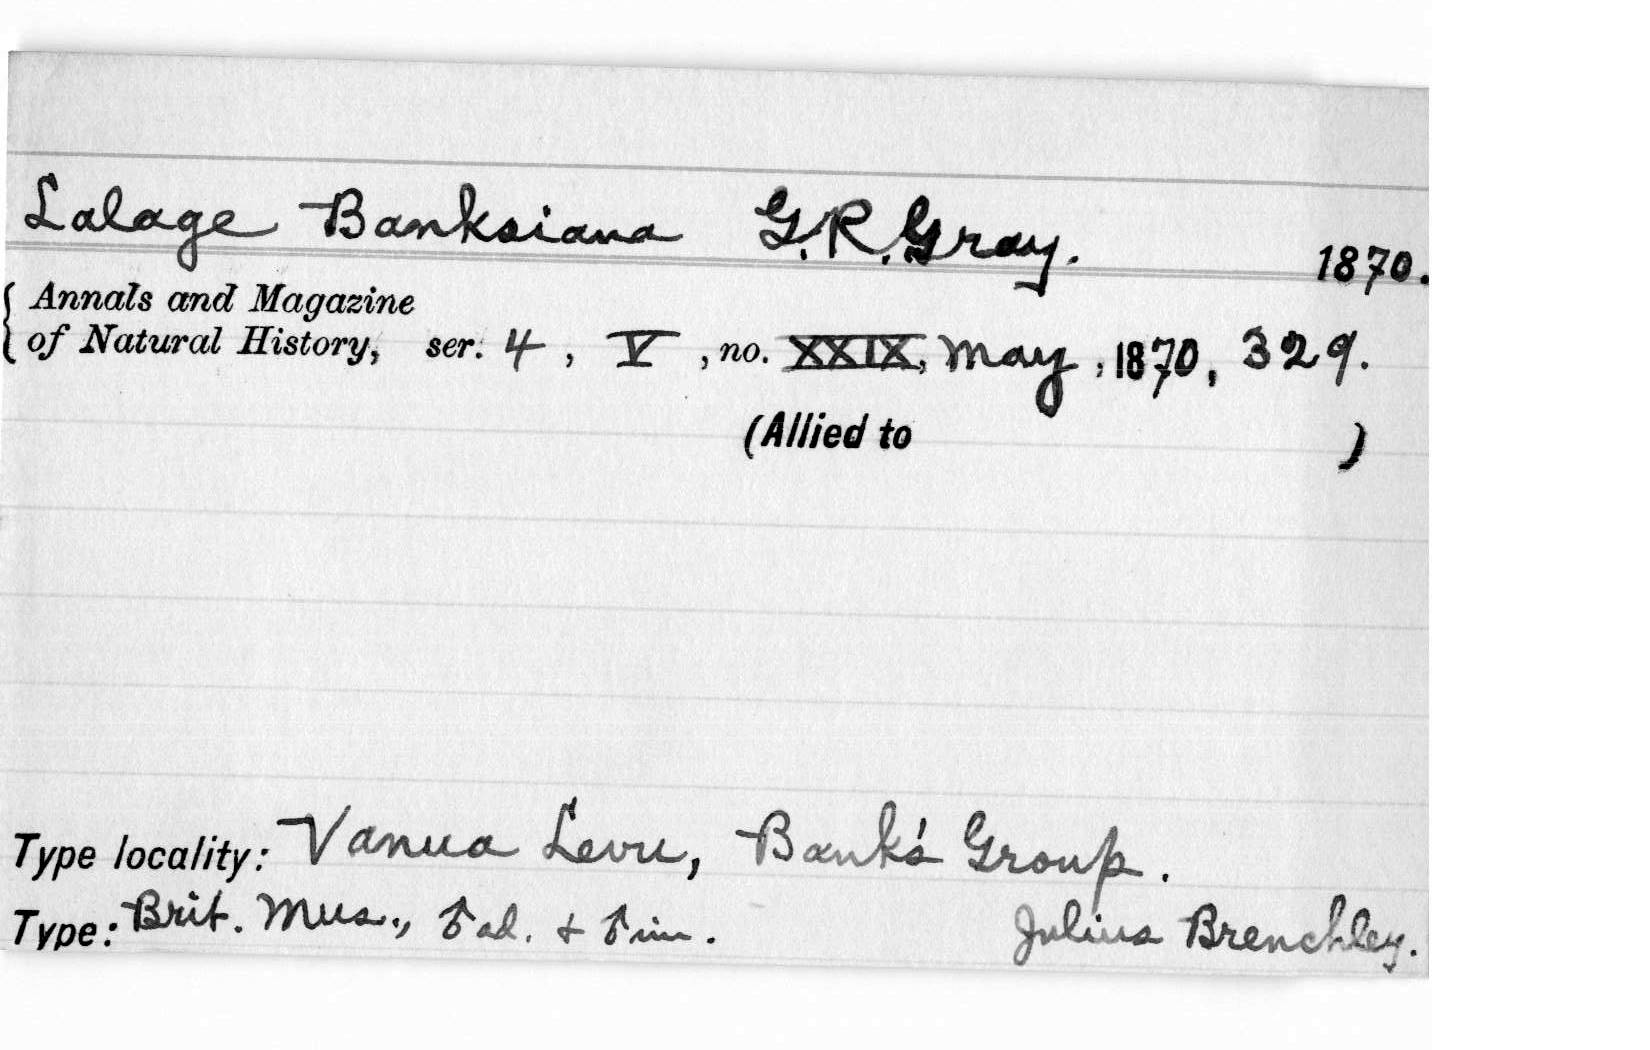 Lalage Banksiana G.R.Gray. 1870.
Annals and Magazine
of Natural History, ser. 4, V, no. XXIX, May, 1870, 329.
(Allied to )
Type locality: Vanua Levu, Bank's Group.
Type: Brit. Mus., ♂ ad. & ♂ imm. Julius Brenchley.